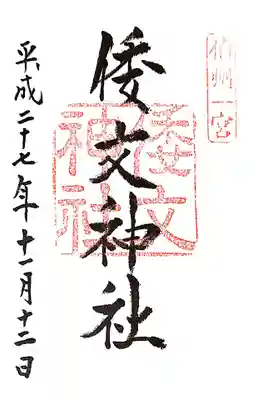 伯州一宮
倭文神社
倭文神社
平成二十七年十一月十二日